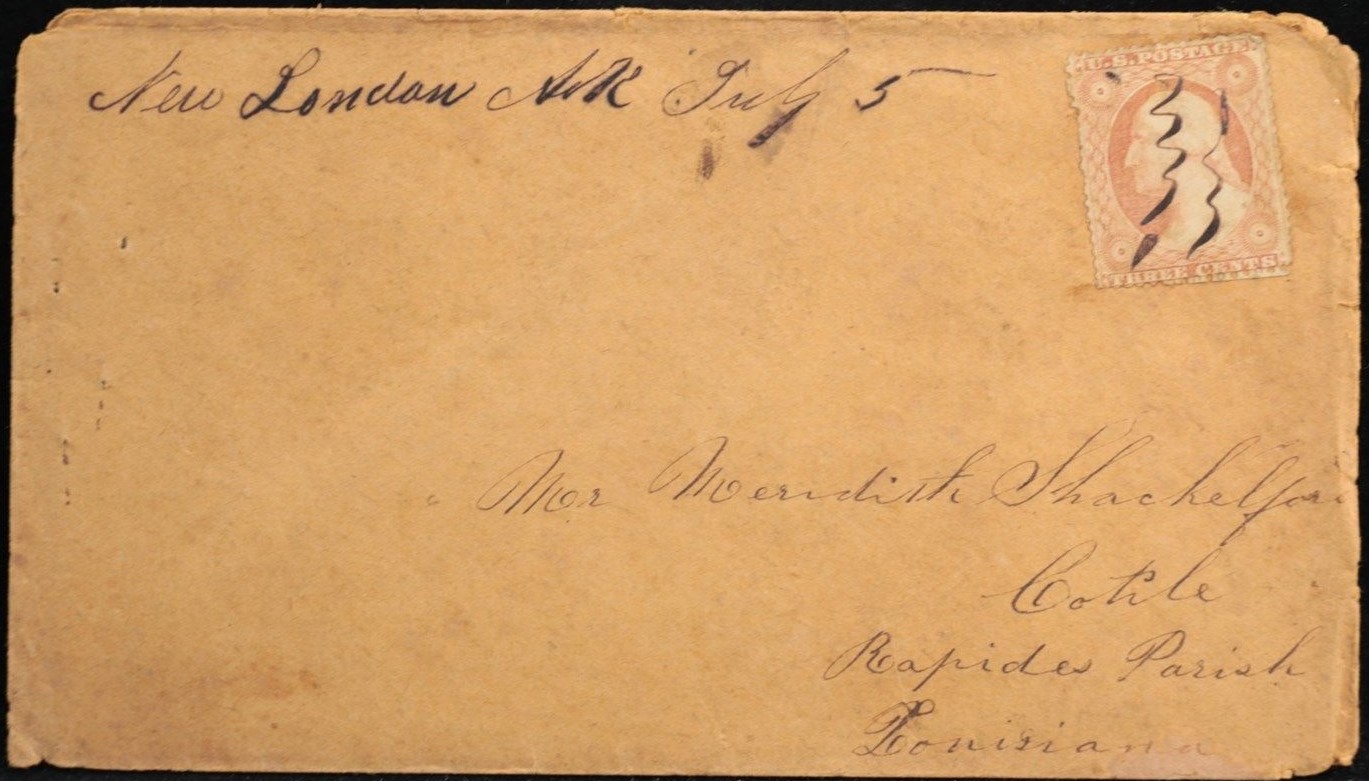 New London Ark July 5
U.S. POSTAGE
THREE CENTS
Mr Meridith Shackelford
Cotile
Rapides Parish
Louisiana